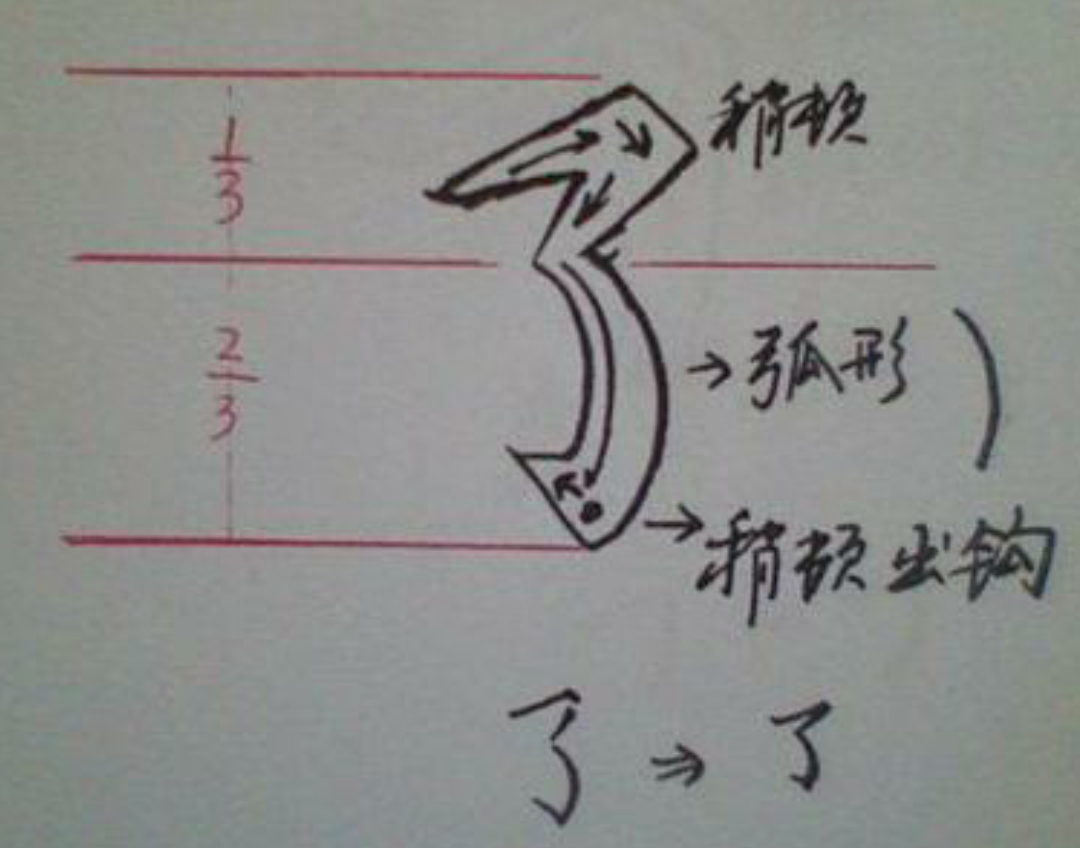 稍顿
1/3
→弧形 )
2/3
→稍顿出钩
了⇒了